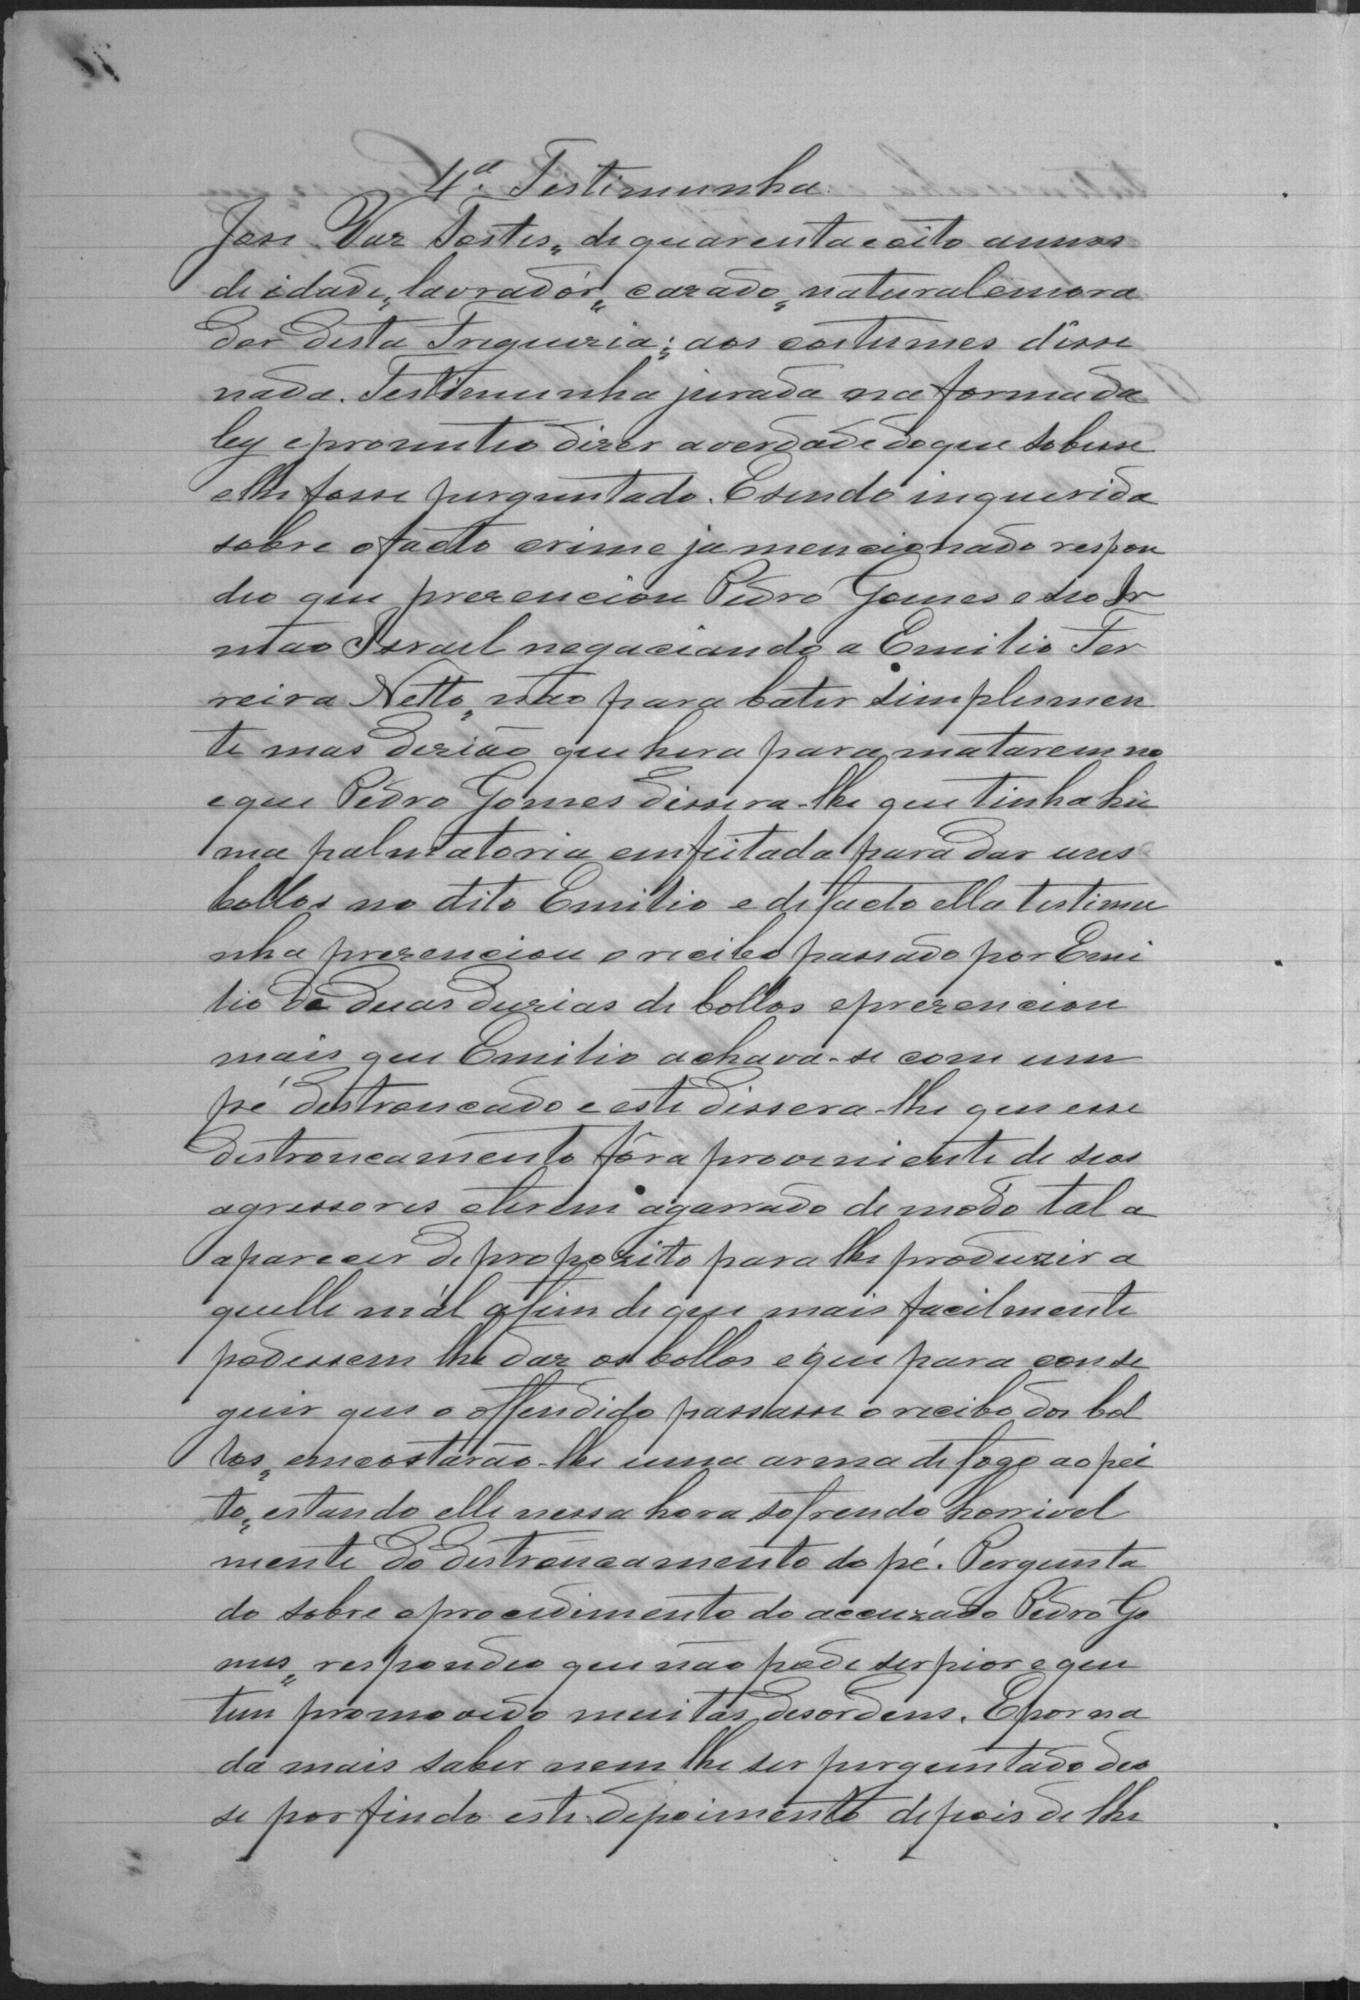 4ª. Testimunha
José Vaz Tostes, de quarenta e oito annos
de idade, lavradôr, cazado, natural e mora
dor desta Freguezia; aos costumes disse
nada. Testimunha jurada na forma da
ley e prometteo dizer a verdade do que sobesse
e lhe fosse perguntado. E sendo inquerida
sobre o facto crime ja mencionado respon
deo que prezenciou Pedro Gomes e seo Ir
mão Israel negociando a Emilio Fer
reira Netto, não para bater simplesmen
te mas dizião que hera para matarem no
e que Pedro Gomes dissera-lhe que tinha hu
ma palmatoria emfeitada para dar uns
bollos no dito Emilio e de facto ella testimu
nha prezenciou o recibo passado por Emi
lio de duas duzias de bollos e prezenciou
mais que Emilio achava-se com um
pé destroncado e este dissera-lhe que esse
destroncamento fôra proveniente de seos
agressores o terem agarrado de modo tal a
aparecer de propozito para lhe produzir a
quelle mál afim de que mais facilmente
podessem lhe dar os bollos e que para conse
guir que o offendido passasse o recibo dos bol
los, emcostarão-lhe uma arma de fogo ao pei
to, estando elle nessa hora sofrendo horrivel
mente do destroncamento do pé. Pergunta
do sobre o procedimento do accuzado Pedro Go
mes, respondeo que não pode ser pior e que
tem promovido muitas desordens. E por na
da mais saber nem lhe ser perguntado deo
se por findo este depoimento depois de lhe